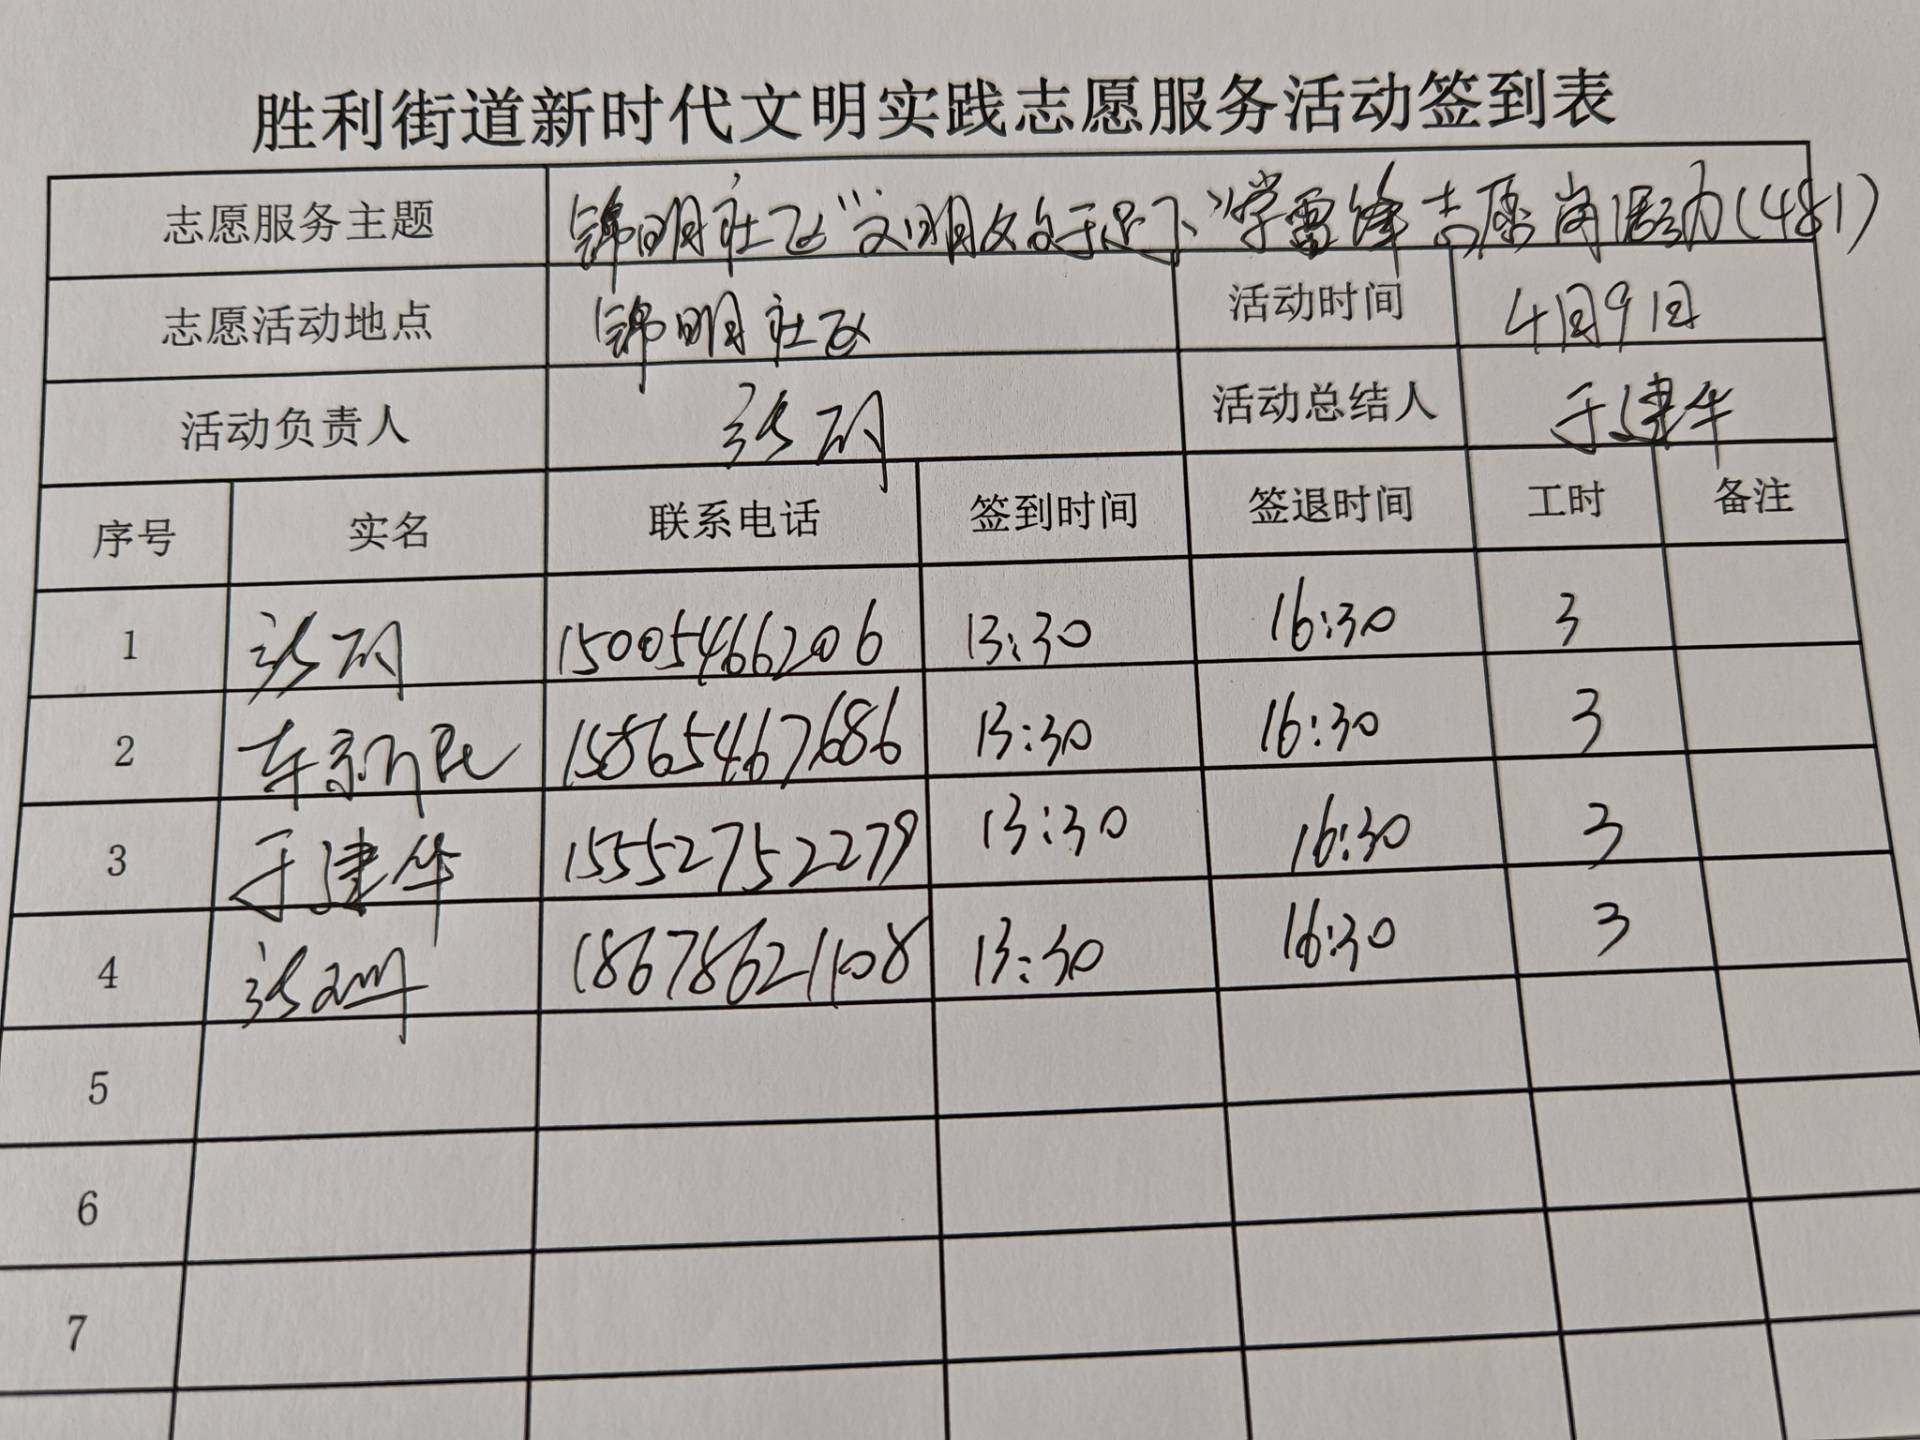 胜利街道新时代文明实践志愿服务活动签到表
志愿服务主题 锦明社区“文明始于足下”学雷锋志愿岗活动(481)
志愿活动地点 锦明社区 活动时间 4月9日
活动负责人 活动总结人 于建华
序号 实名 联系电话 签到时间 签退时间 工时 备注
1 15005466206 13:30 16:30 3
2 车新民 15865467686 13:30 16:30 3
3 于建华 15552752279 13:30 16:30 3
4 张珊 18678621108 13:30 16:30 3
5
6
7